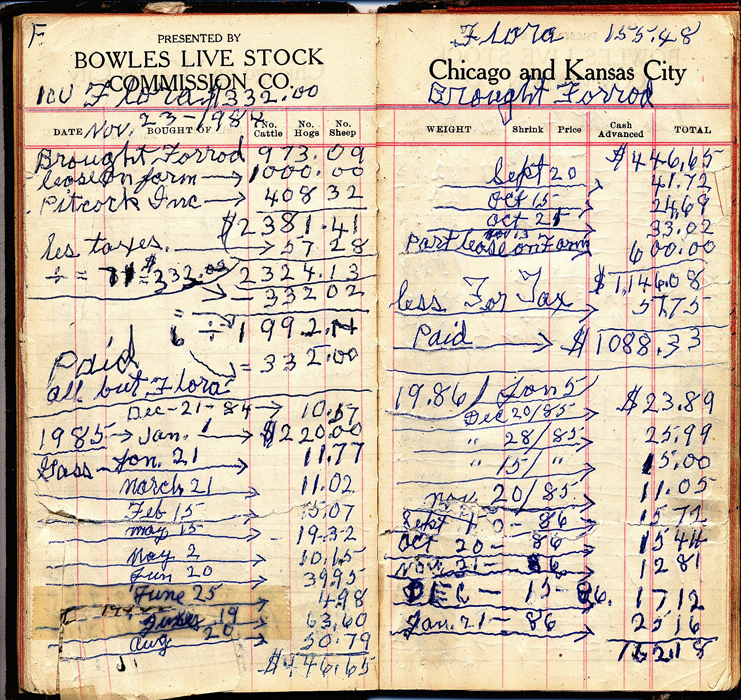 F
PRESENTED BY
BOWLES LIVE STOCK
COMMISSION CO.
Flora $332.00
Nov. 23-1984
DATE BOUGHT OF No. Cattle No. Hogs No. Sheep
Brought Forrod 973.09
lease on farm → 1000.00
Pitcock Inc → 408 32
$2381.41
les taxes. → 57 28
÷ = 71 = $332.02 2324.13
→ - 332 02
= 6 ÷ 1992.14
= 332.00
Paid
all but Flora
Dec-21-84 → 10.57
1985 → Jan. 1 → $220.00
Gass - Jan. 21 → 11.77
March 21 → 11.02
Feb 15 → 15.07
may 15 → 19.32
May 2 → 10.15
Jun 20 → 39.95
June 25 → 4.98
19 → 63.60
Aug 20 → 50.79
$446.65
Flora 155.48
Chicago and Kansas City
Brought Forrod
WEIGHT Shrink Price Cash Advanced TOTAL
$446.65
Sept 20 → 41.72
Oct 15 → 24.69
Oct 25 → 33.02
Nov 13
Part lease on Farm 600.00
$1,146.08
less For Tax → 57.75
Paid → $1088.33
19.86/ Jan 5
Dec 20/85 → $23.89
" 28/85 → 25.99
" 15/ " → 15.00
Nov 20/85 → 11.05
Sept 40- 86 → 15 72
Oct 20- 86 → 15 44
Nov. 21- 86 → 12 81
DEC - 15- 86. 17 12
Jan. 21- 86 → 25 16
162.18